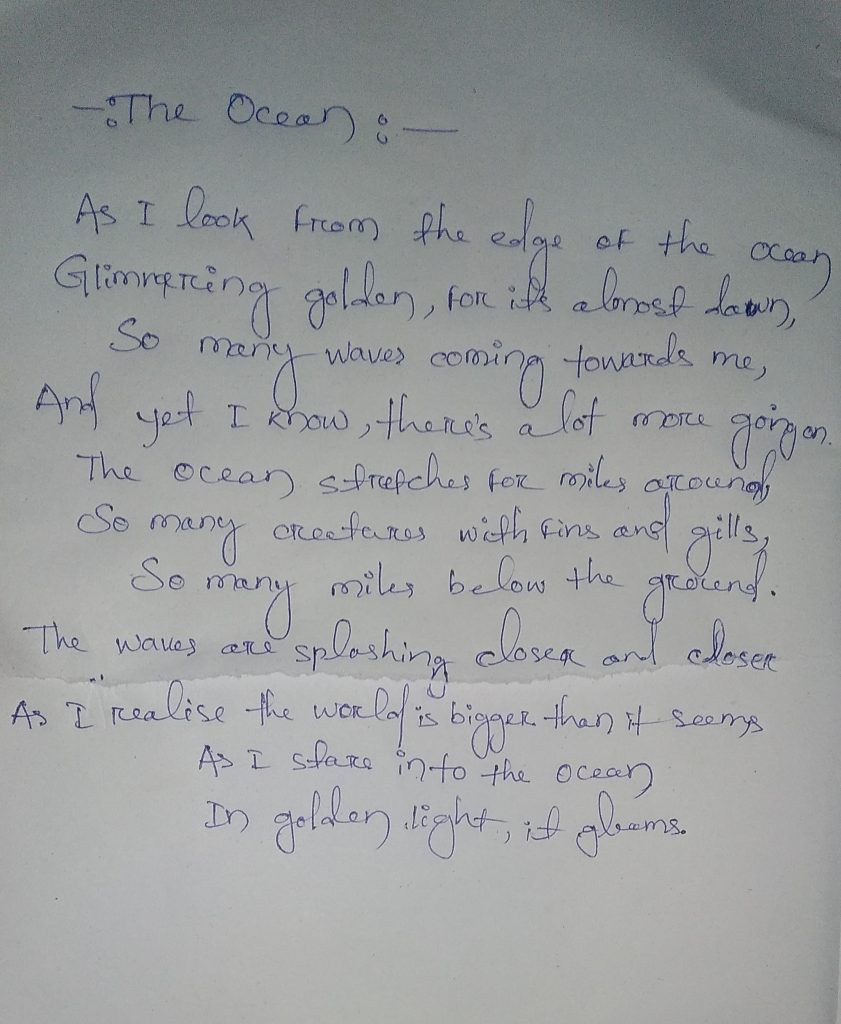 -:The Ocean:-
As I look from the edge of the ocean
Glimmering golden, for it's almost dawn,
So many waves coming towards me,
And yet I know, there's a lot more going on.
The ocean stretches for miles around,
So many creatures with fins and gills,
So many miles below the ground.
The waves are splashing closer and closer
As I realise the world is bigger than it seems
As I stare into the ocean
In golden light, it gleams.